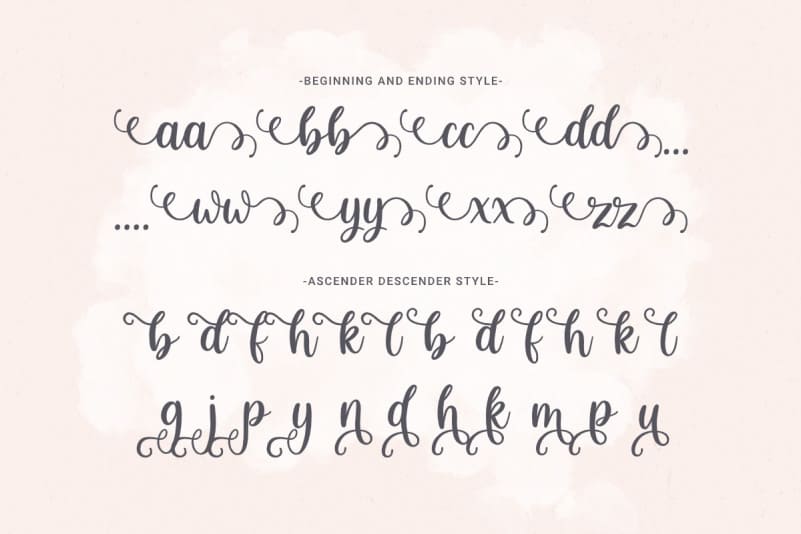 -BEGINNING AND ENDING STYLE-
aa bb cc dd...
....ww yy xx zz
-ASCENDER DESCENDER STYLE-
b d f h k l b d f h k l
g j p y n d h k m p u